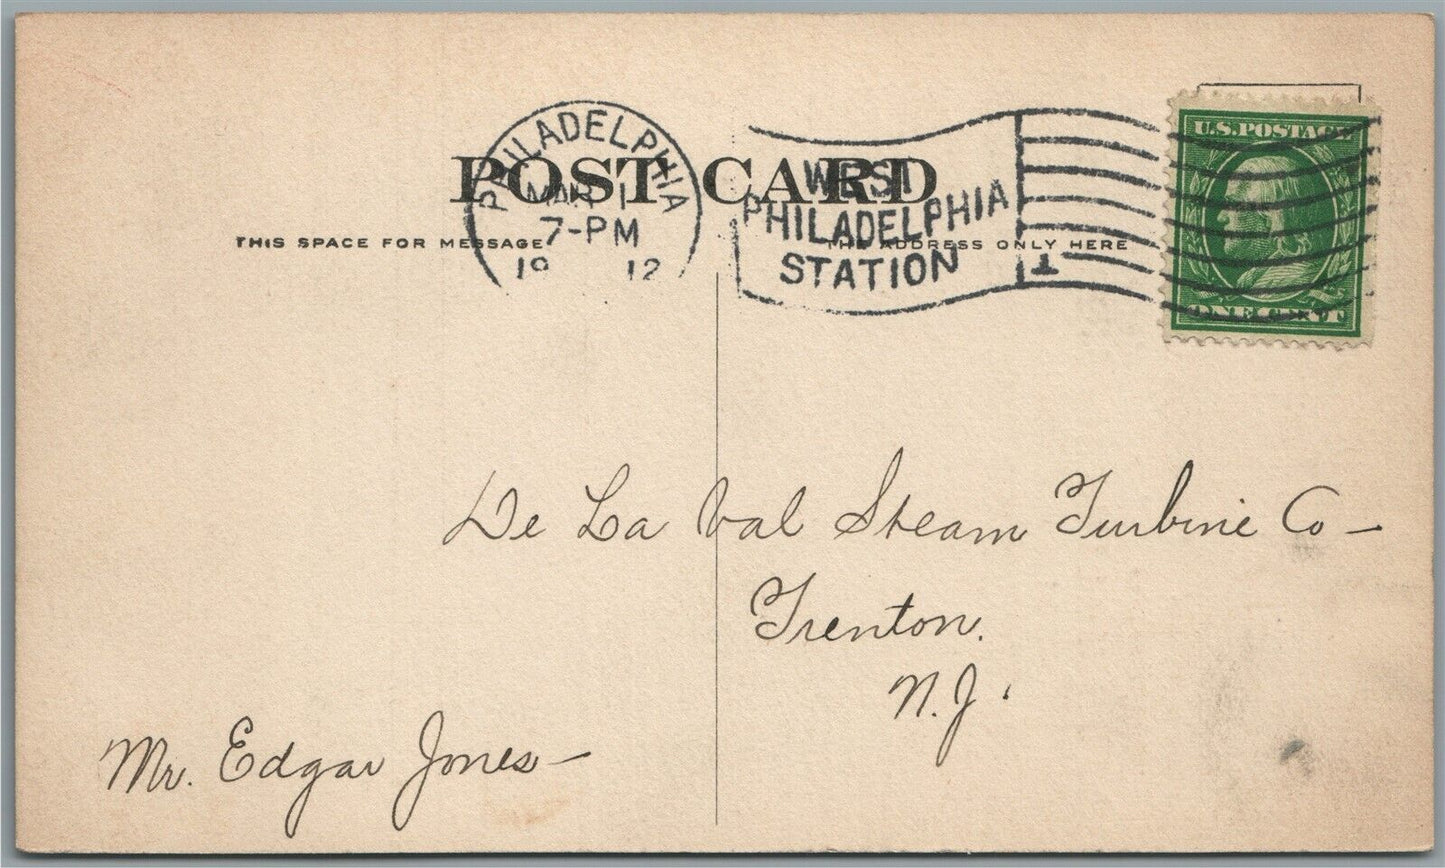 POST CARD
PHILADELPHIA
MAR 1
7-PM
19 12
WEST
PHILADELPHIA
STATION
1
U.S. POSTAGE
ONE CENT
THIS SPACE FOR MESSAGE
THE ADDRESS ONLY HERE
De La Val Steam Turbine Co –
Trenton.
N.J.
Mr. Edgar Jones –